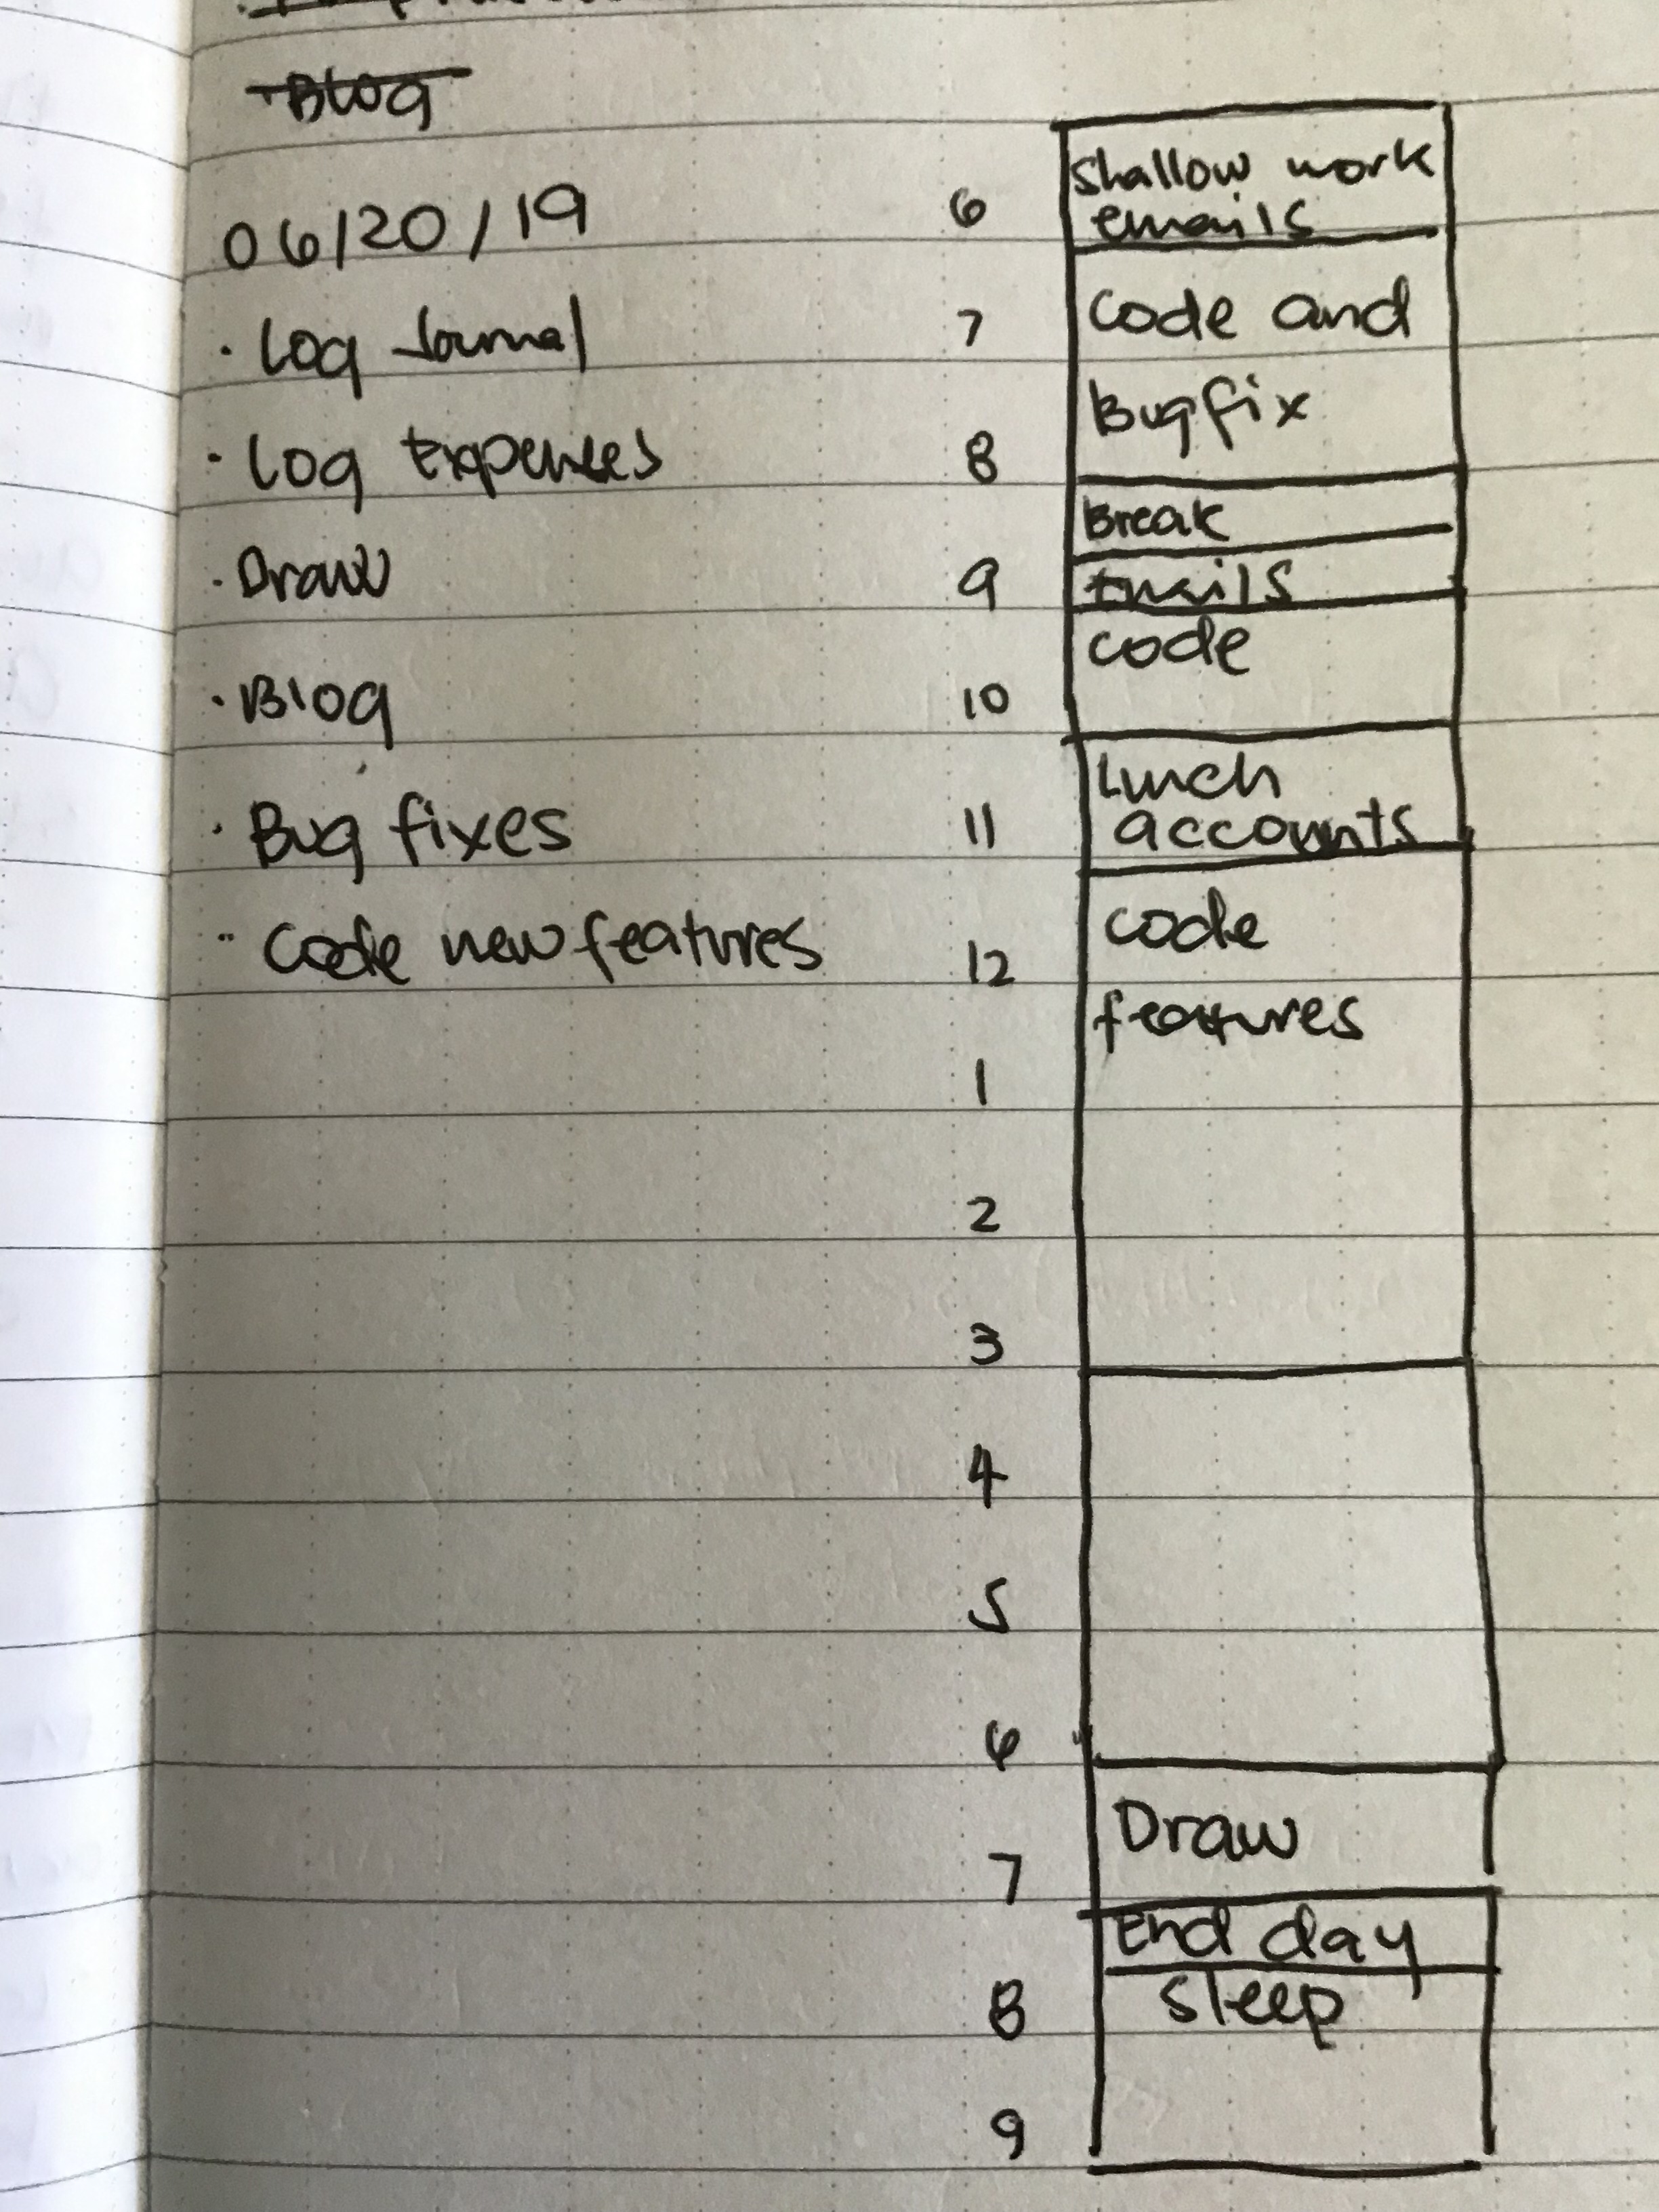 Blog
06/20/19
· Log Journal
· Log Expenses
· Draw
· Blog
· Bug fixes
· Code new features
6 Shallow work
emails
7 Code and
Bugfix
8
Break
9 Emails
Code
10
Lunch
11 accounts
12 Code
features
1
2
3
4
5
6
Draw
7
End day
8 Sleep
9